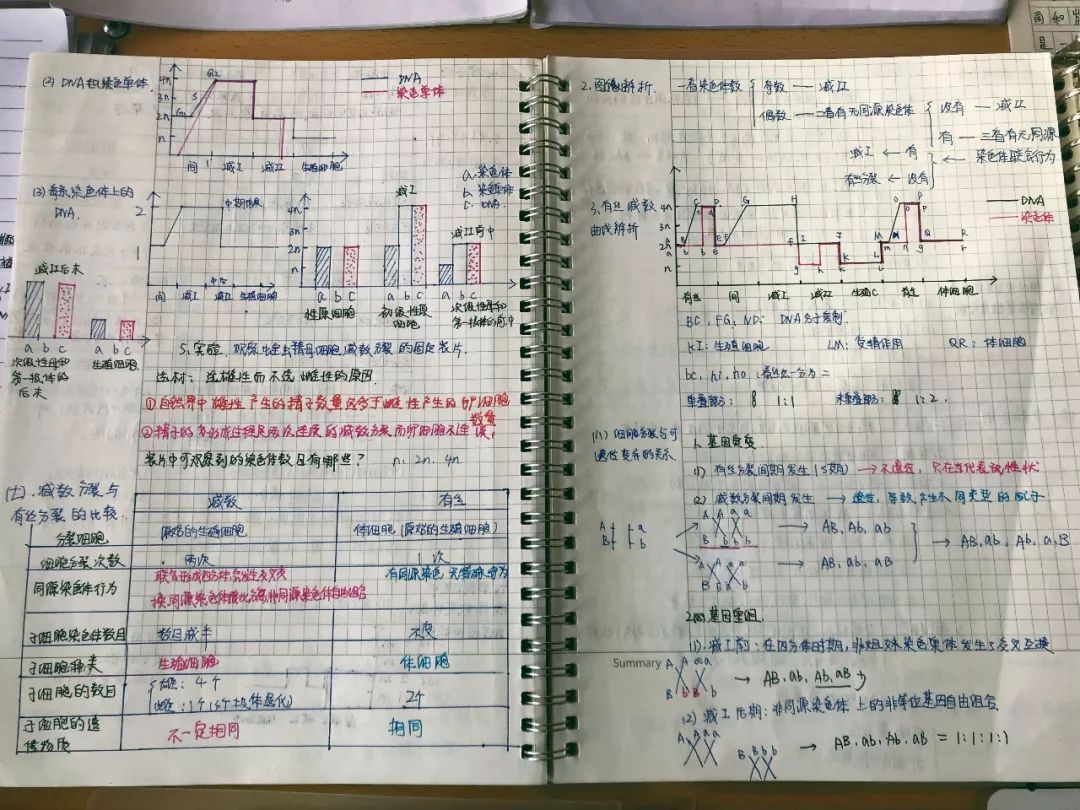 (2) DNA和染色单体
4n
3n
2n
G2
S
G1
DNA
染色单体
间 减I 减II 生殖细胞
(3) 每条染色体上的
DNA.
2
1
中期后
间 减I 减II 生殖细胞
a. 染色体
b. 染色单体
c. DNA.
4n
3n
2n
n
减I
减II前中
a b c
a b c
a b c
性原细胞
初级性原
细胞
次级性母和
第一极体的前中
减II后末
a b c
a b c
次级性母和
第一极体的
后末
生殖细胞
5. 实验. 观察蝗虫精母细胞减数分裂的固定装片.
选材: 选雄性而不选雌性的原因.
①自然界中雄性产生的精子数量远多于雌性产生的卵细胞
数量
②精子的形成过程是两次连续的减数分裂而卵细胞不连续.
装片中可观察到的染色体数目有哪些? n. 2n. 4n.
(七). 减数分裂与
有丝分裂的比较.
减数
有丝
分裂细胞
原始的生殖细胞
体细胞 (原始的生殖细胞)
细胞分裂次数
两次
1次
同源染色体行为
联会形成四分体,会发生交叉
换,同源染色体彼此分离,非同源染色体自由组合
有同源染色,无特殊行为
子细胞染色体数目
数目减半
不变
子细胞种类
生殖细胞
体细胞
子细胞的数目
雄: 4个
雌: 1个(3个极体退化)
2个
子细胞的遗
传物质
不一定相同
相同
2. 图像辨析. 一看染色体数
奇数 — 减II
偶数 — 二看有无同源染色体
没有 — 减II
有 — 三看有无同源
减I ← 有
有丝分裂 ← 没有
← 染色体联会行为
3. 有丝. 减数
曲线辨析
4n
3n
2n
n
DNA
染色体
有丝 间 减I 减II 生殖C 有丝 体细胞
BC, FG, ND: DNA分子复制.
KI: 生殖细胞 LM: 受精作用 QR: 体细胞
bc, hi, no: 着丝点一分为二
重叠部分: 1:1 未重叠部分: 1:2.
(八) 细胞分裂与可
遗传变异的关系
1. 基因突变.
(1) 有丝分裂间期发生 (S期) → 不遗传, 只在当代表现性状
(2) 减数分裂间期发生 → 遗传, 导致产生不同类型的配子
A a
B b
A A a a
B b b b
→ AB, Ab, ab
→ AB, ab, aB
→ AB, ab, Ab, aB
2. 基因重组.
(1). 减I前: 在四分体时期, 非姐妹染色单体发生了交叉互换
Summary
A A a a
B b B b
→ AB, ab, Ab, aB
(2) 减I后期: 非同源染色体上的非等位基因自由组合
A A a a
B B b b
→ AB, ab, Ab, aB = 1:1:1:1